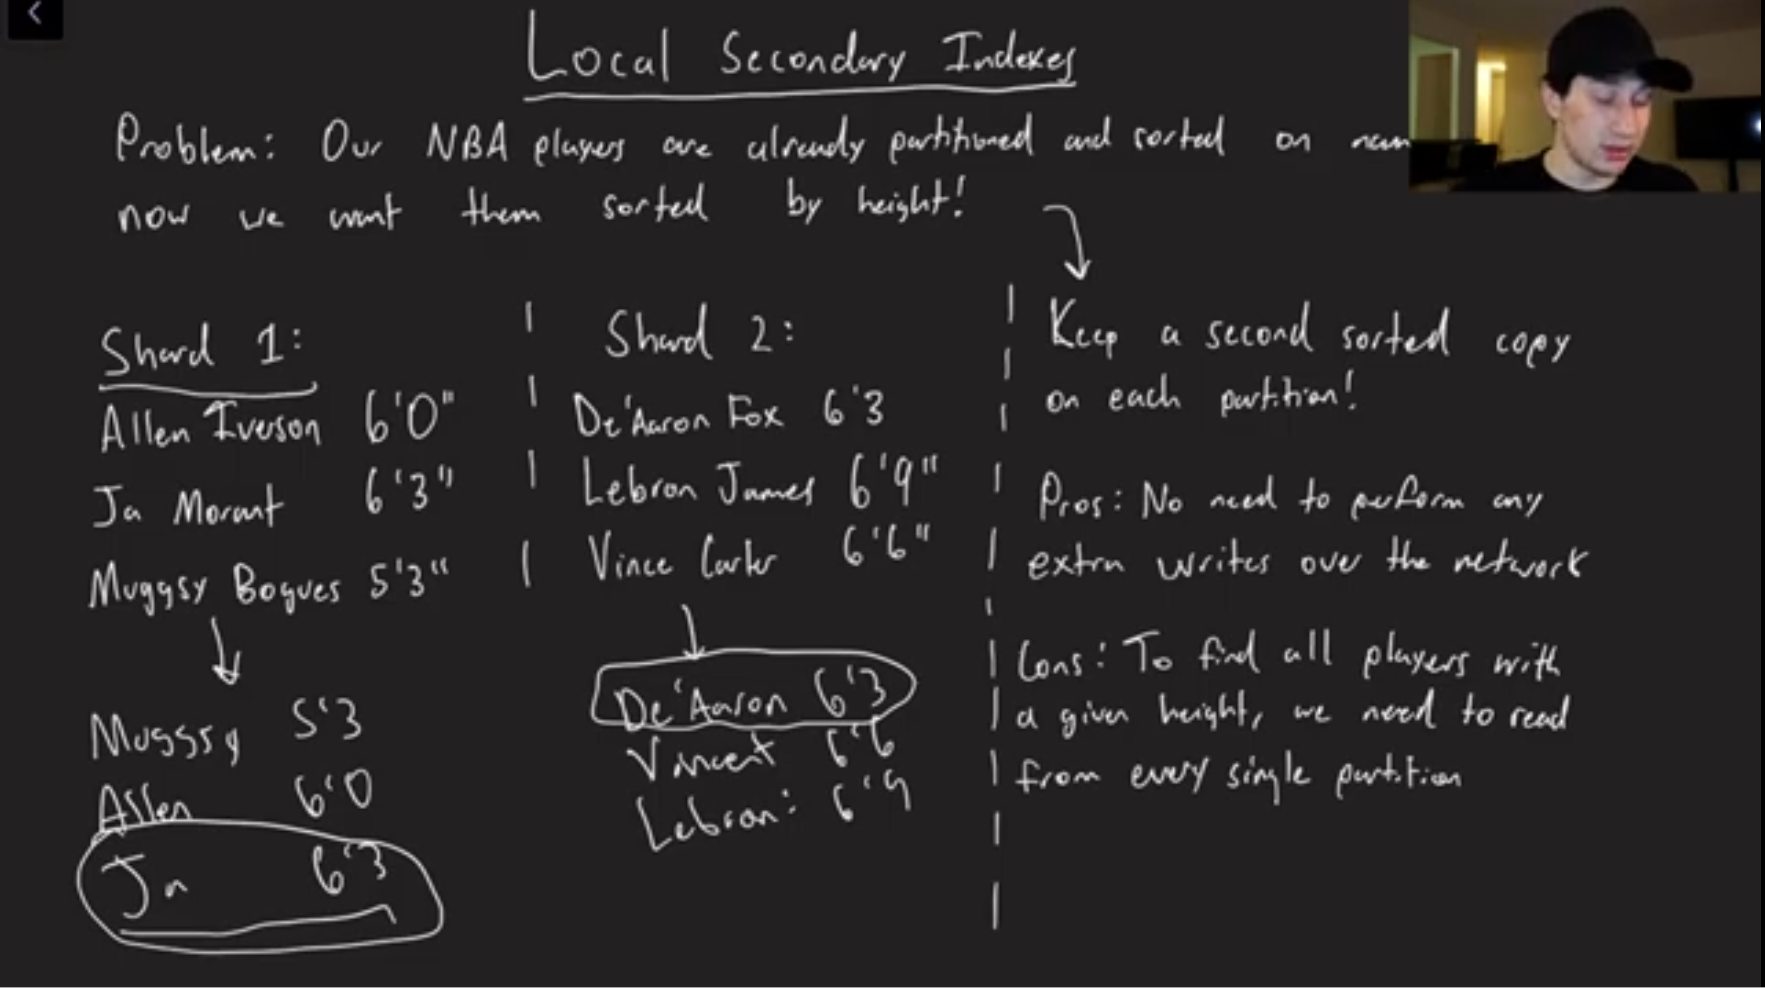 Local Secondary Indexes
Problem: Our NBA players are already partitioned and sorted on
now we want them sorted by height!
Shard 1:
Allen Iverson 6'0"
Ja Morant 6'3"
Muggsy Bogues 5'3"
Muggsy 5'3
Allen 6'0
Ja 6'3
Shard 2:
De'Aaron Fox 6'3
Lebron James 6'9"
Vince Carter 6'6"
De'Aaron 6'3
Vincent 6'6
Lebron: 6'9
Keep a second sorted copy
on each partition!
Pros: No need to perform any
extra writes over the network
Cons: To find all players with
a given height, we need to read
from every single partition